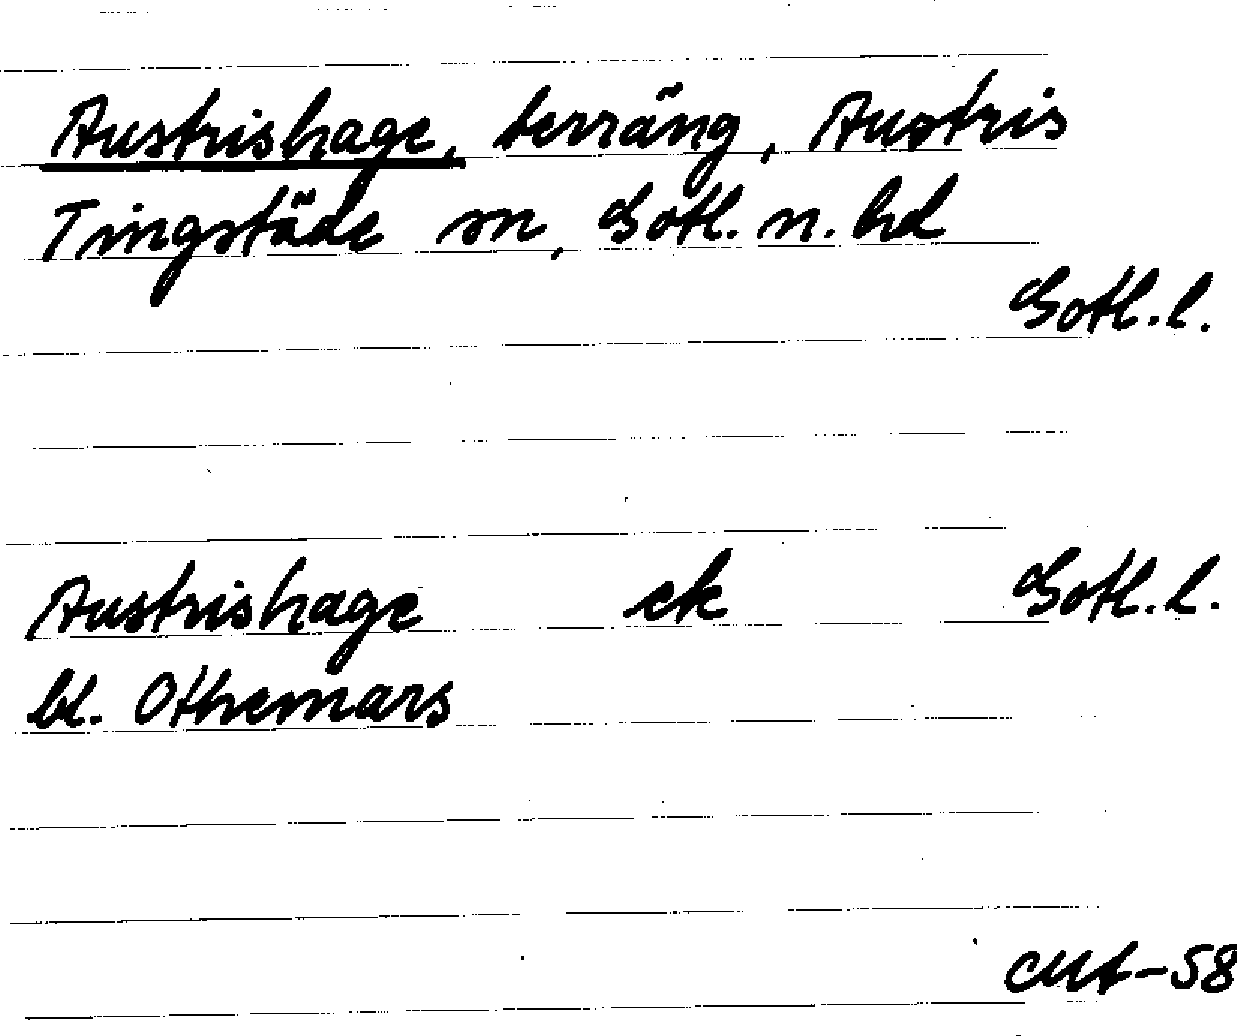 Austrishage, terräng, Austris
Tingstäde sn, Gotl. n. hd
Gotl. l.
Austrishage ek Gotl. l.
bl. Othemars
-58